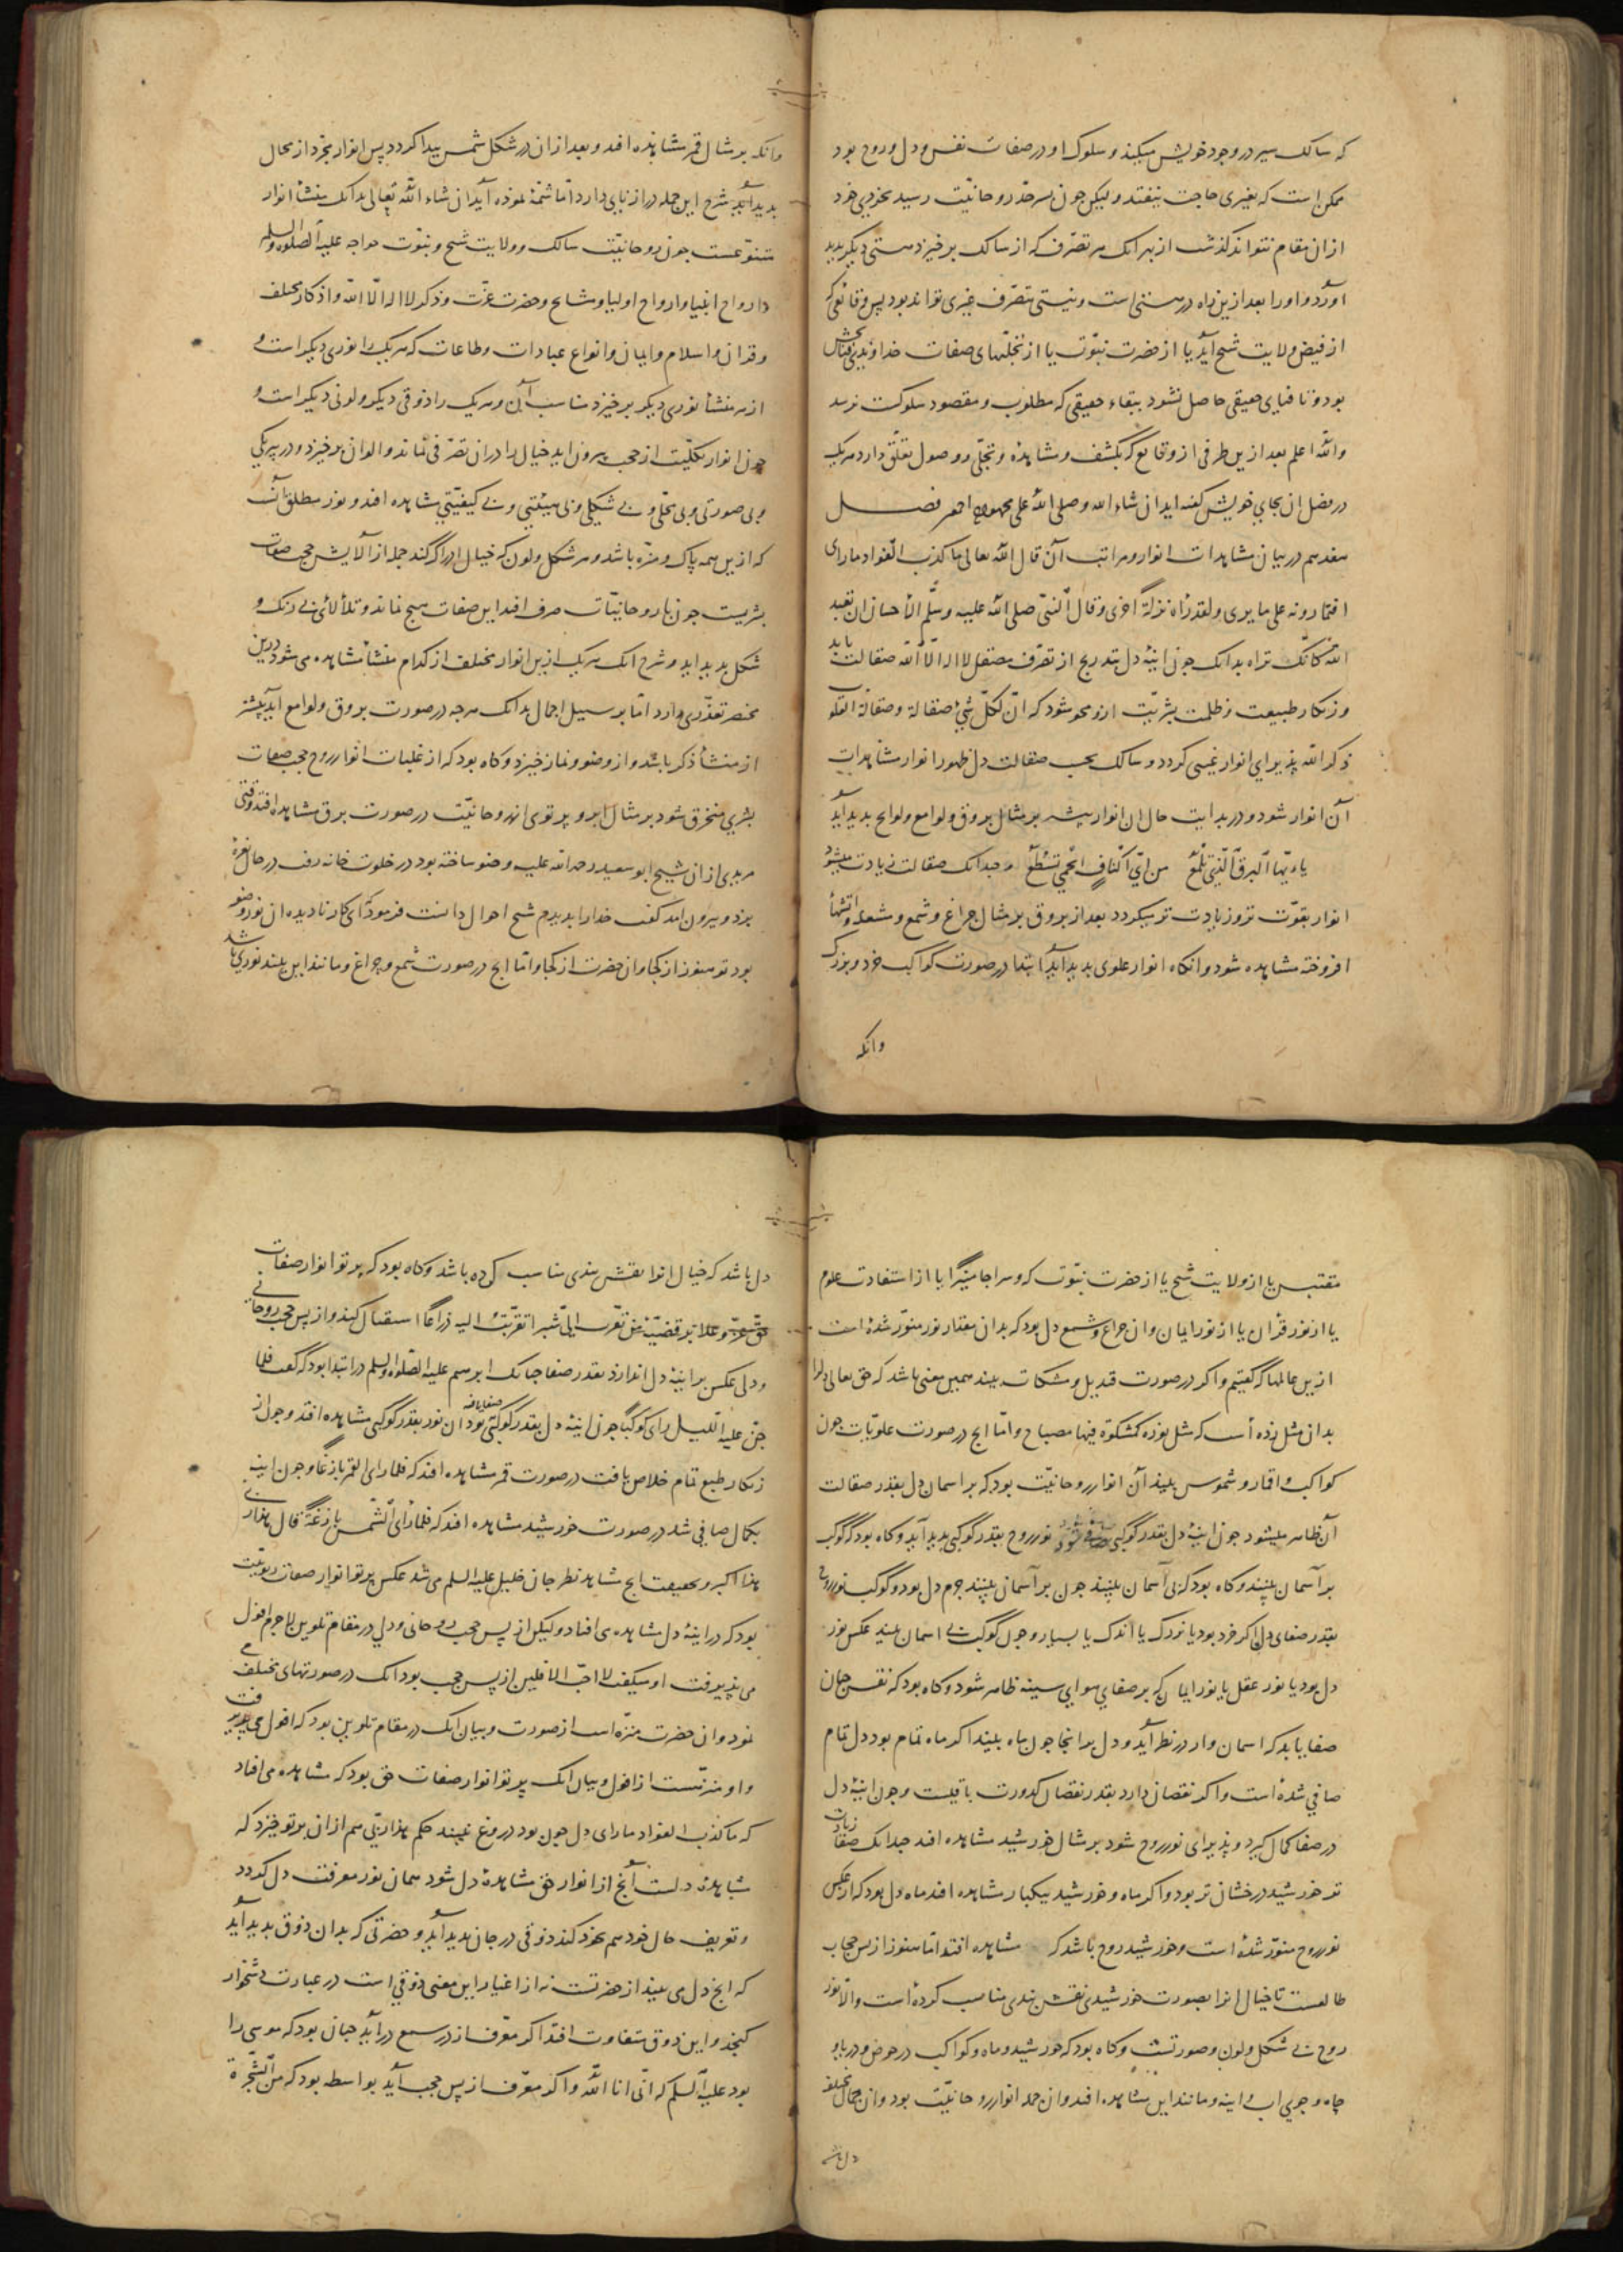 که سالک سیر در وجود خویش میکند و سلوک او در صفات نفس و دل و روح بود
ممکن است که بغیری حاجت نیفتد ولیکن جون بسرحد روحانیت رسید بخودی خود
ازان مقام نتواند کذشت از بهر انک هر تصرف که از سالک برخیزد هستی دیکر بدید
آورد و اورا بعد ازین راه در نیستی است و نیستی بتصرف غیری تواند بود پس وقائعی که
از فیض ولایت شیخ آید یا از حضرت نبوت یا از تجلیهای صفات خداوندی فنا بخش
بود و تا فنای حقیقی حاصل نشود ببقاء حقیقی که مطلوب و مقصود سلوکست نرسد
والله اعلم بعد ازین طرفی از وقایع که بکشف و مشاهده و تجلی و وصول تعلق دارد هریک
در فصل ان بجای خویش کفته اید ان شاء الله و صلی الله علی محمد واله اجمعین فصل
هفدهم در بیان مشاهدات انوار و مراتب آن قال الله تعالی ما کذب الفؤاد ما رای
افتمارونه علی ما یری ولقد رآه نزلة اخری وقال النبی صلی الله علیه وسلم الاحسان ان تعبد
الله کانک تراه بدانک جون اینهٔ دل بتدریج از تصرف مصقل لا اله الا الله صقالت یابد
و زنکار طبیعت و ظلمت بشریت ازو محو شود که ان لکل شیء صقالة وصقالة القلوب
ذکر الله پذیرای انوار غیبی کردد و سالک بحسب صقالت دل و ظهور انوار مشاهدات
آن انوار شود و در بدایت حال ان انوار بیشتر بر مثال بروق و لوامع و لوایح بدید آید
یا ایها البرق الذی تلمع من ای اکناف الحمی تسطع و جندانک صقالت زیادت میشود
انوار بقوت تر و زیادت تر میکردد بعد از بروق بر مثال جراغ و شمع و مشعله و اتشها
افروخته مشاهده شود و انکاه انوار علوی بدید آید ابتدا در صورت کواکب خرد و بزرک
وانکه
وانکه بر مثال قمر مشاهده افتد و بعد ازان در شکل شمس پیدا کردد پس انوار مجرد از محال
بدید آید شرح این جمله درازنایی دارد اما شمهٔ نموده آید ان شاء الله تعالی بدانک منشأ انوار
متنوعست جون روحانیت سالک و ولایت شیخ و نبوت خواجه علیه الصلوه والسلم
و ارواح انبیا و ارواح اولیا و مشایخ و حضرت عزت و ذکر لا اله الا الله و اذکار مختلف
و قران و اسلام و ایمان و انواع عبادات و طاعات که هریک را نوری دیکر است و
از هر منشأ نوری دیکر برخیزد مناسب آن و هریک را ذوقی دیکر و لونی دیکر است و
جون انوار بکلیت از حجب بیرون اید خیال را دران تصرفی نماند و الوان برخیزد و در بیرنکی
و بی صورتی و بی محلی و بی شکلی و بی هیئتی و بی کیفیتی مشاهده افتد و نور مطلق آنست
که ازین همه پاک و منزه باشد و هر شکل و لون که خیال ادراک کند جمله از آلایش حجب صفات
بشریت جون با روحانیات صرف افتد این صفات هیج نماند و تلألائی بی رنک و
شکل بدید اید و شرح انک هریک ازین انوار مختلف از کدام منشأ مشاهده می شود درین
مختصر تعذری دارد اما بر سبیل اجمال بدانک هرجه در صورت بروق و لوامع آید بیشتر
از منشأ ذکر باشد و از وضو و نماز خیزد و کاه بود که از غلبات انوار روح حجب صفات
بشری منخرق شود بر مثال ابر و پرتوی از روحانیت در صورت برق مشاهده افتد وقتی
مریدی ازان شیخ ابو سعید رحمة الله علیه وضو ساخته بود در خلوت خانه رفت در حال نعرهٔ
بزد و بیرون امد کفت خدا را بدیدم شیخ احوال دانست فرمود ای کار نادیده ان نور وضو
بود تو هنوز از کجا و ان حضرت از کجا و اما انج در صورت شمع و جراغ و مانند این بیند نوری باشد
مقتبس یا از ولایت شیخ یا از حضرت نبوت که وسراجا منیرا یا از استفادت علوم
یا از نور قرآن یا از نور ایمان و ان جراغ و شمع دل بود که بدان مقدار نور منور شده است
ازین عالمها که کفتیم و اکر در صورت قندیل و مشکات بیند همین معنی باشد که حق تعالی دلرا
بدان مثل زده است که مثل نوره کمشکوة فیها مصباح و اما انج در صورت علویات جون
کواکب و اقمار و شموس بیند آن انوار روحانیت بود که بر اسمان دل بقدر صقالت
آن ظاهر میشود جون اینهٔ دل بقدر کوکبی صافی شود نور روح بقدر کوکبی بدید آید و کاه بود که کوکب
بر آسمان بینند و کاه بود که بی آسمان بینند جون بر آسمان بینند جرم دل بود و کوکب نور روح
بقدر صفای دل اکر خرد بود یا بزرک یا اندک یا بسیار و جون کوکب بی اسمان بیند عکس نور
دل بود یا نور عقل یا نور ایمان که بر صفای هوای سینه ظاهر شود و کاه بود که نفس جنان
صفا یابد که اسمان وار در نظر آید و دل بر انجا جون ماه بیند اکر ماه تمام بود دل تمام
صافی شده است و اکر نقصان دارد بقدر نقصان کدورت باقیست و جون اینهٔ دل
در صفا کمال کیرد و پذیرای نور روح شود بر مثال خورشید مشاهده افتد جندانک صفا زیادت
تر خورشید درخشان تر بود و اکر ماه و خورشید بیکبار مشاهده افتد ماه دل بود که از عکس
نور روح منور شده است و خورشید روح باشد که مشاهده افتد اما هنوز از پس حجاب
طالعست تا خیال انرا بصورت خورشیدی نقش بندی مناسب کرده است و الا نور
روح بی شکل و لون و صورتست و کاه بود که خورشید و ماه و کواکب در حوض و دریا و
جاه و جوی اب و اینه و مانند این مشاهده افتد و ان جمله انوار روحانیت بود و ان محال مختلف
دل باشد
دل باشد که خیال انرا نقش بندی مناسب کرده باشد و کاه بود که پرتو انوار صفات
حق عز و علا بر قضیهٔ من تقرب الی شبرا تقربت الیه ذراعا استقبال کند و از پس حجب روحانی
و دلی عکس بر اینهٔ دل اندازد بقدر صفا جنانک ابرهیم علیه الصلوه والسلم در ابتدا بود که کفت فلما
جن علیه اللیل رای کوکبا جون اینهٔ دل بقدر کوکبی صفا یافته بود ان نور بقدر کوکبی مشاهده افتد و جون از
زنکار طبع تمام خلاص یافت در صورت قمر مشاهده افتد که فلما رای القمر بازغا و جون اینه
بکمال صافی شد در صورت خورشید مشاهده افتد که فلما رأی الشمس بازغة قال هذا ربی
هذا اکبر و بحقیقت انج مشاهد نظر جان خلیل علیه السلم می شد عکس پرتو انوار صفات ربوبیت
بود که در اینهٔ دل مشاهده می افتاد ولیکن از پس حجب روحانی و دلی در مقام تلوین لاجرم افول
می پذیرفت او میکفت لا احب الافلین از پس حجب بود انک در صورتهای مختلف می
نمود و ان حضرت منزه است از صورت و بیان انک در مقام تلوین بود که افول می پذیرفت
و او منزهست از افول و بیان انک پرتو انوار صفات حق بود که مشاهده می افتاد
که ما کذب الفواد ما رای دل جون بود دروغ نبیند حکم هذا ربی هم ازان پرتو خیزد که
مشاهدهٔ دلست آنج از انوار حق مشاهدهٔ دل شود همان نور معرفت دل کردد
و تعریف حال خود هم بخود کند ذوقی در جان بدید آید و حضرتی که بدان ذوق بدید آید
که انج دل می بیند از حضرتست نه از اغیار این معنی ذوقی است در عبارت دشخوار
کنجد و این ذوق متفاوت افتد اکر معرف از در سمع در آید جنان بود که موسی را
بود علیه السلم که انی انا الله و اکر معرف از پس حجب آید بواسطه بود که من الشجرة